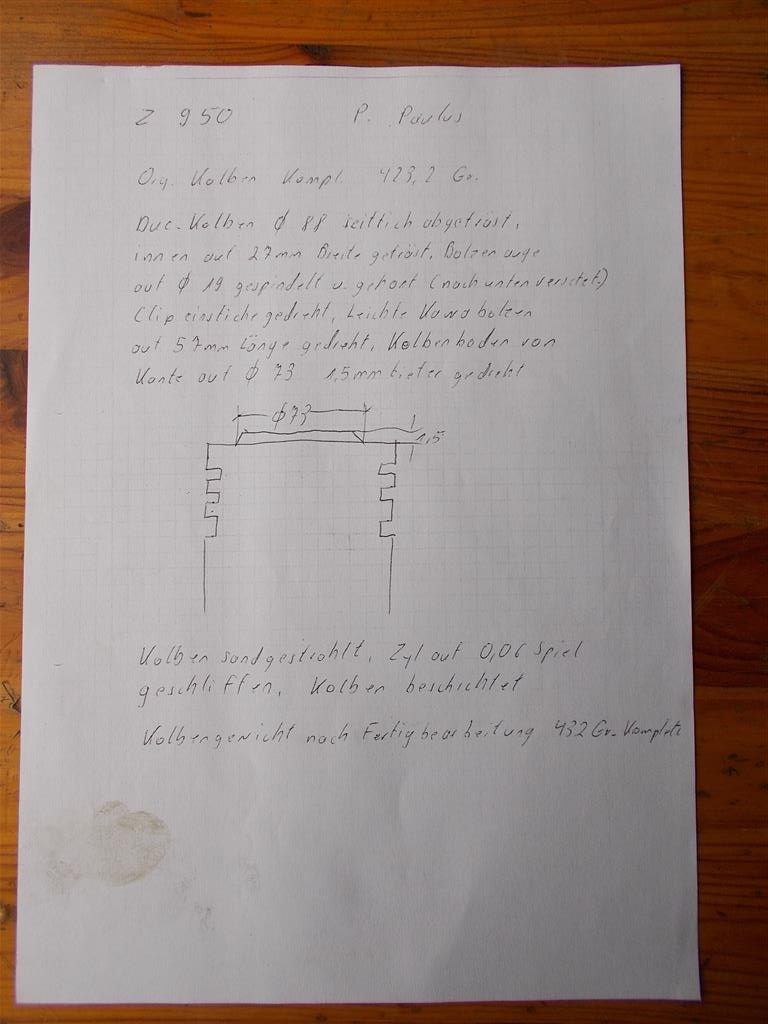 Z 950 P. Paulus
Orig. Kolben Kompl. 423,2 Gr.
Duc-Kolben Ø 88 seitlich abgefräst,
innen auf 27mm Breite gefräst, Bolzenauge
auf Ø 19 gespindelt u. gehont (nach unten versetzt)
Clip einstiche gedreht, Leichte Kawa bolzen
auf 57mm Länge gedreht, Kolbenboden von
Kante auf Ø 73 1,5mm tiefer gedreht
Ø73
1,5
Kolben sandgestrahlt, Zyl auf 0,06 Spiel
geschliffen, Kolben beschichtet
Kolbengewicht nach Fertigbearbeitung 432 Gr. Komplett